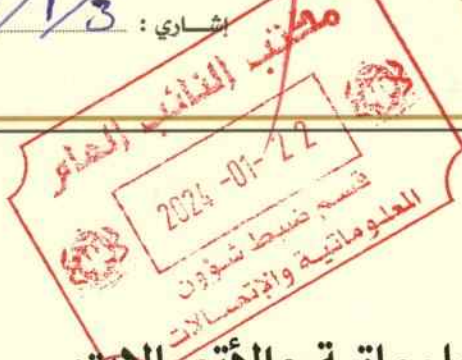 إشاري : 3/1/
مكتب النائب العام
2024-01-22
قسم ضبط شؤون
المعلوماتية والإتصالات